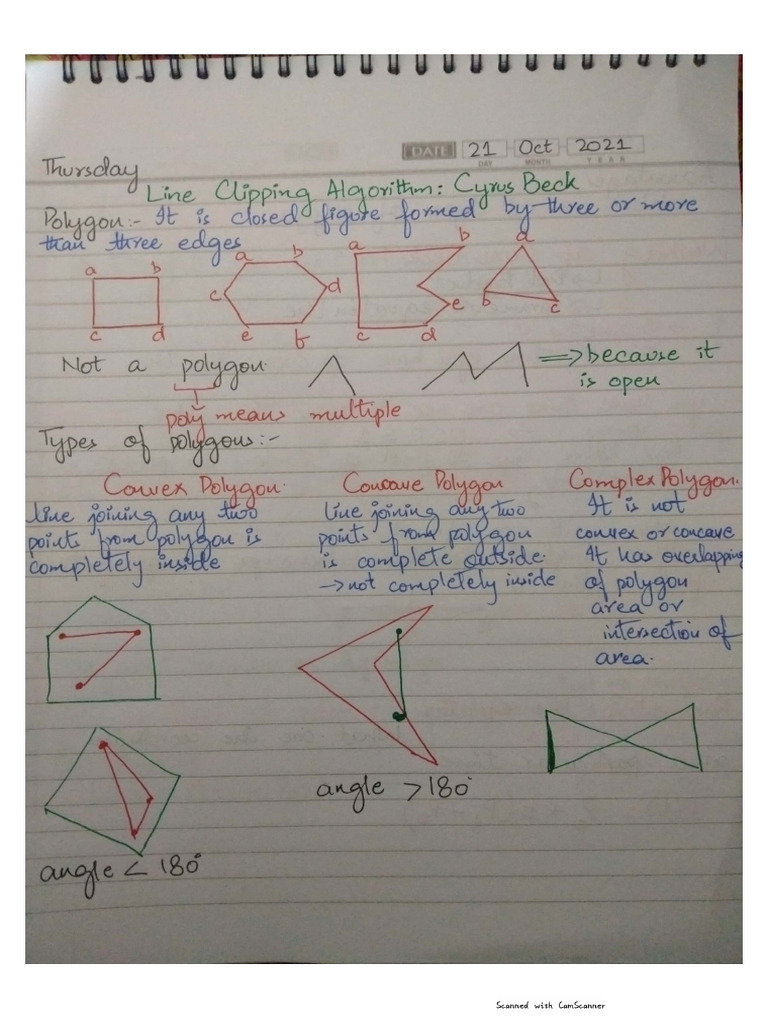 DATE 21 Oct 2021
DAY MONTH YEAR
Thursday
Line Clipping Algorithm: Cyrus Beck
Polygon:- It is closed figure formed by three or more
than three edges
a b c d
a b c d e f
a b c d e
a b c
Not a polygon. => because it
is open
poly means multiple
Types of polygons:-
Convex Polygon.
line joining any two
points from polygon is
completely inside
angle < 180°
Concave Polygon
line joining any two
points from polygon
is complete outside.
→ not completely inside
angle > 180°
Complex Polygon.
It is not
convex or concave
It has overlapping
of polygon
area or
intersection of
area.
Scanned with CamScanner